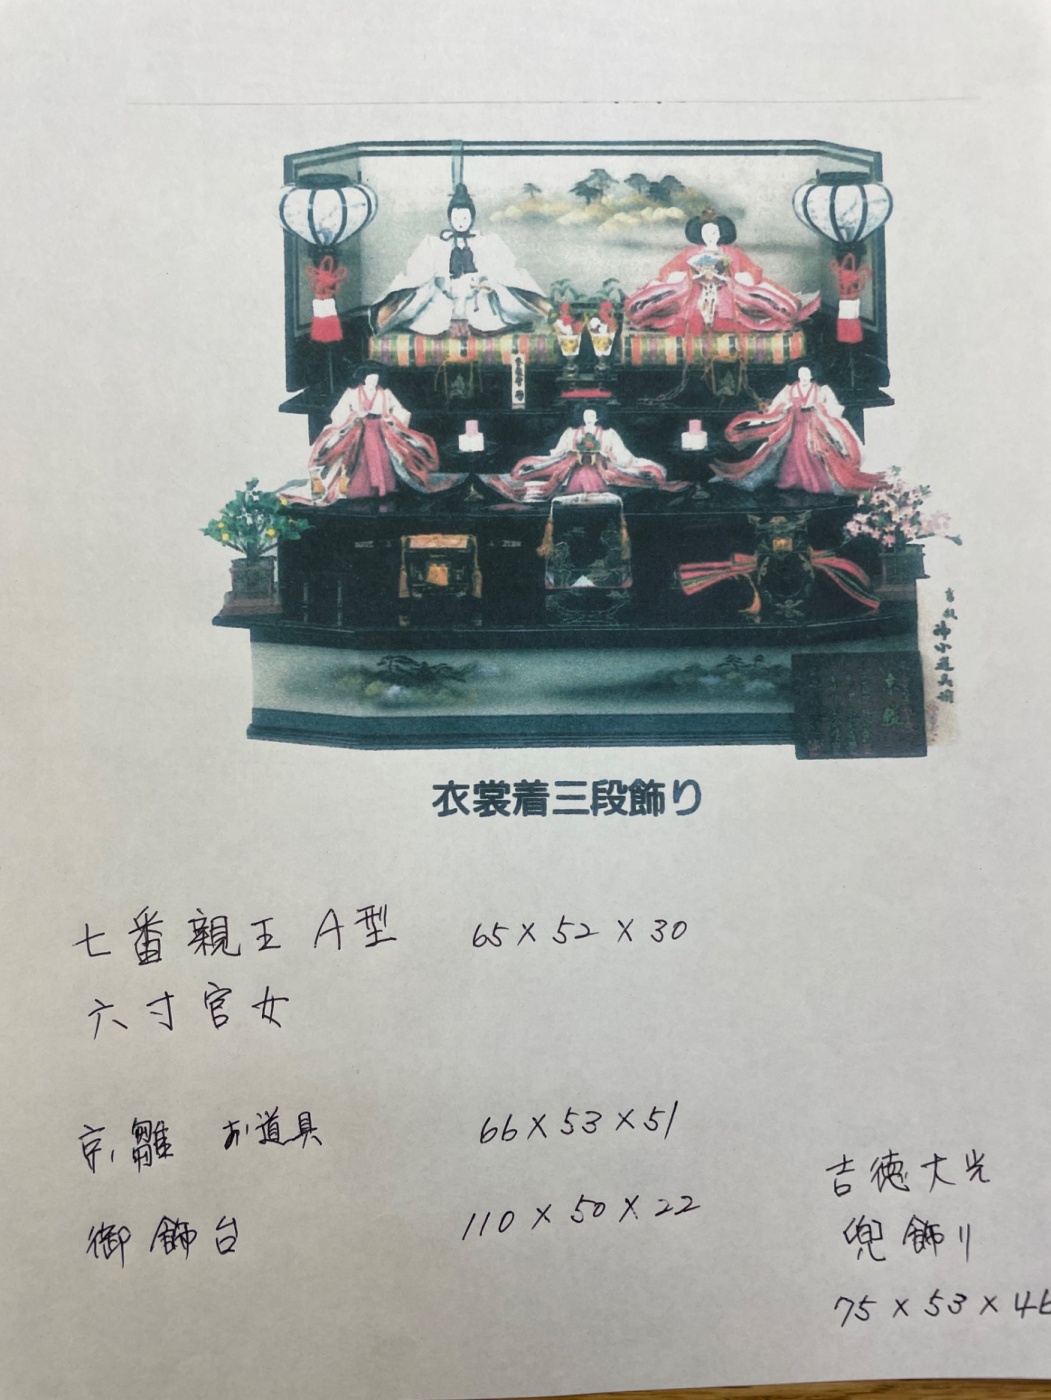 衣裳着三段飾り
七番親王 A型 65×52×30
六寸官女
京雛 お道具 66×53×51
御飾台 110×50×22
吉徳大光
兜飾り
75×53×46